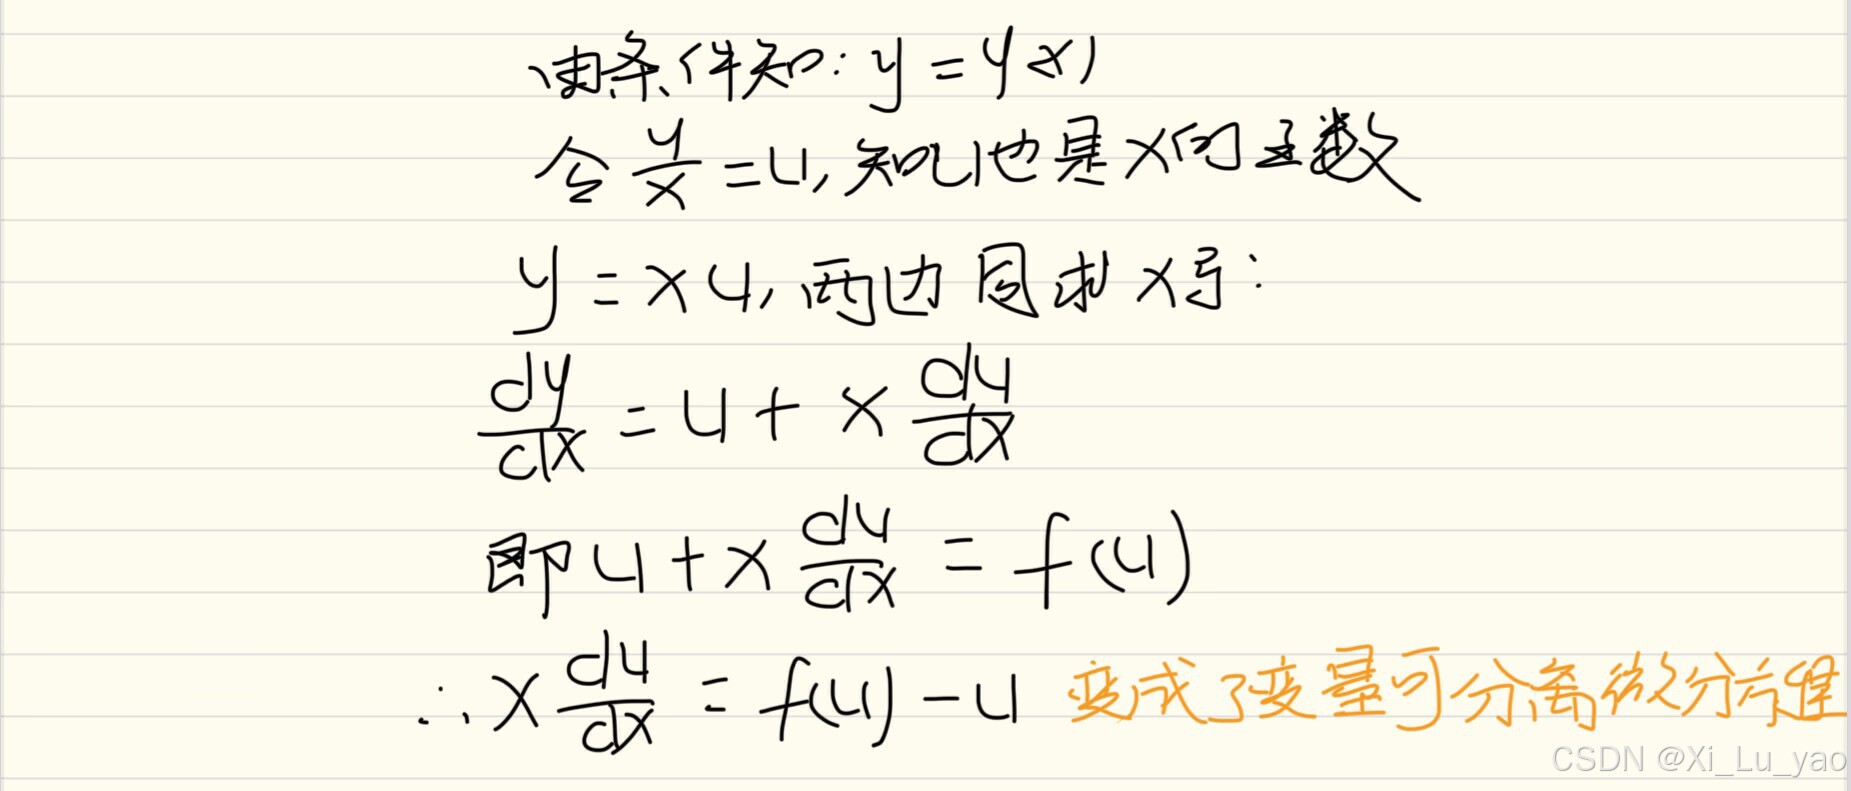 由条件知: y = y(x)
令 y/x = u, 知u也是x的函数
y = xu, 两边同求x导:
dy/dx = u + x du/dx
即 u + x du/dx = f(u)
∴ x du/dx = f(u) - u 变成了变量可分离微分方程
CSDN @Xi_Lu_yao